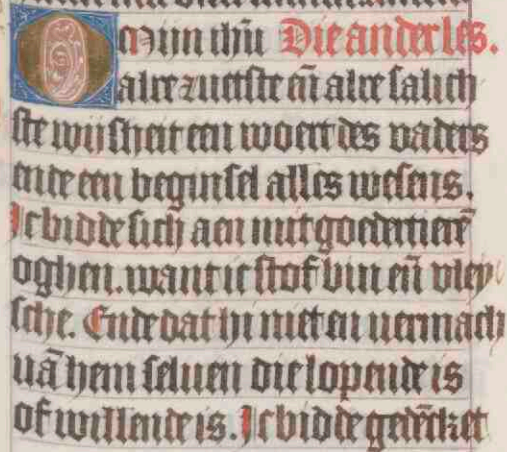 O mijn ihū Die ander les.
alre zuetste eñ alre salich
ste wijsheit een woert des vaders
ende een beginsel alles wesens.
Ic bidde sich aen mit goedertierē
oghen. want ic stof bin eñ vley
sche. Ende dat hi niet en vermach
vā hem seluen die lopende is
of willende is. Ic bidde gedēcket